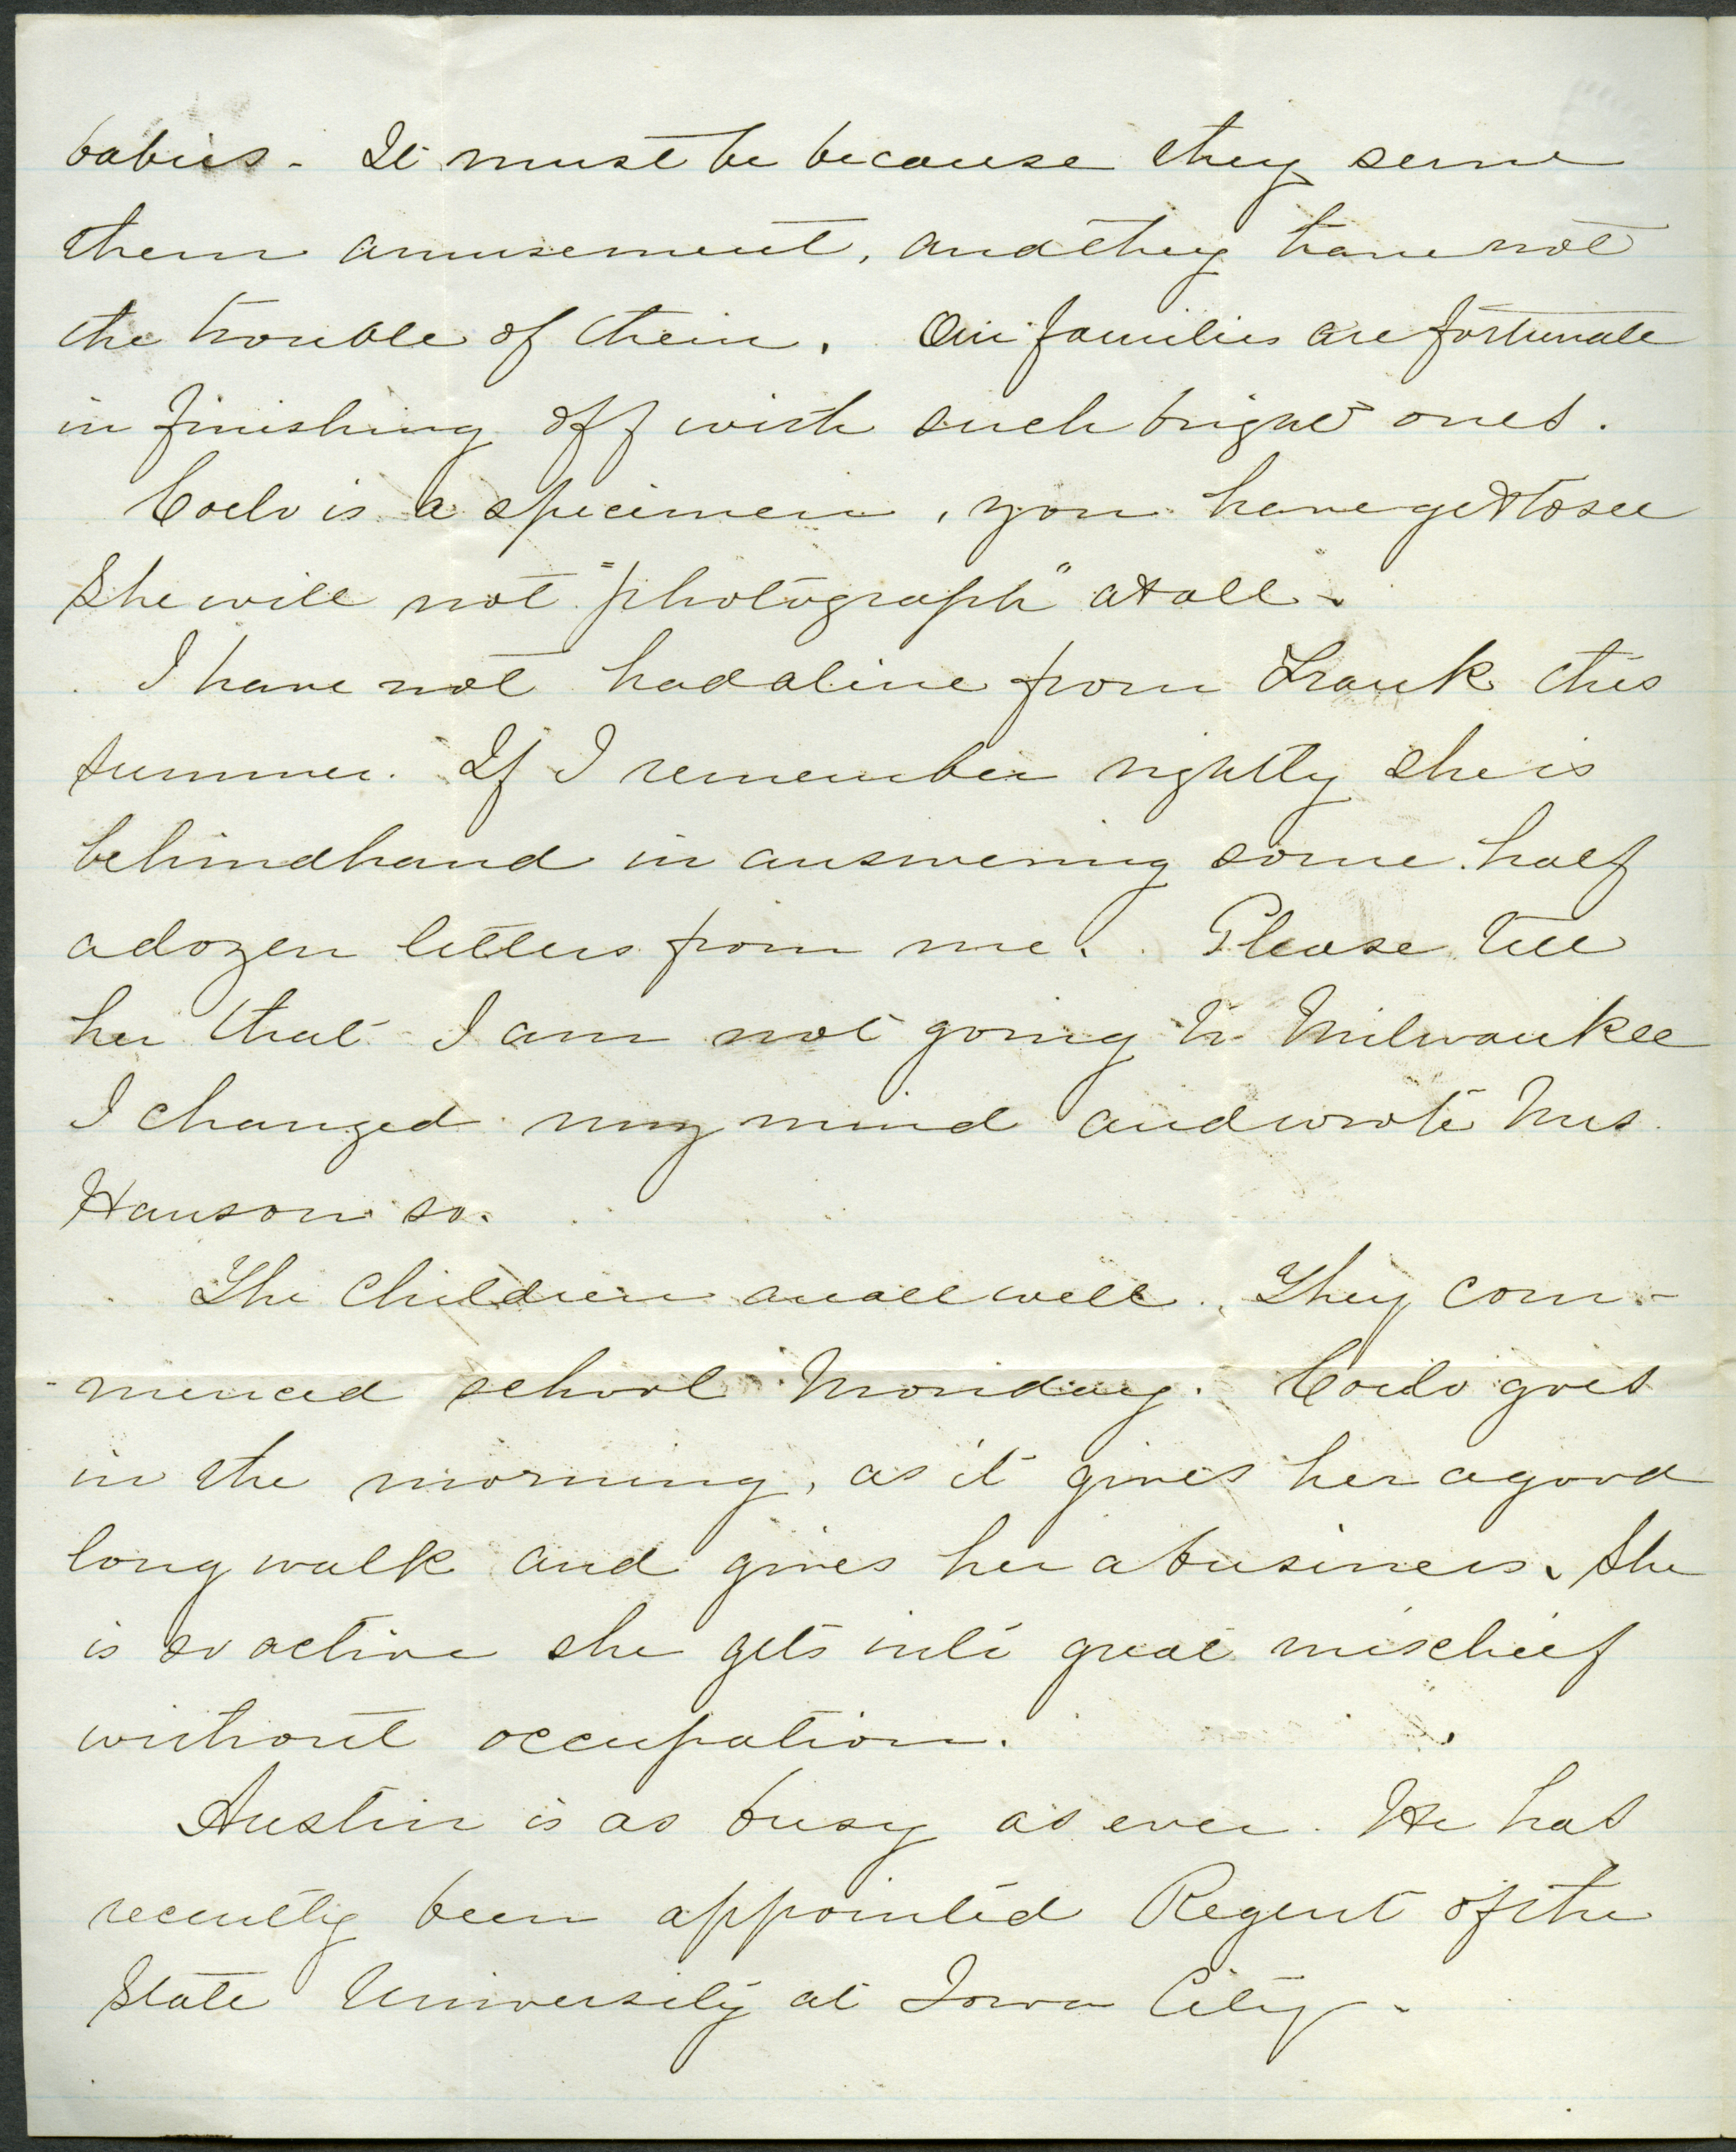 babies. It must be because they serve
them amusement, and they have not
the trouble of them. Our families are fortunate
in finishing off with such bright ones.
Coelo is a specimen, you have got to see
She will not "photograph" at all.
I have not had a line from Frank this
summer. If I remember rightly she is
behindhand in answering some half
a dozen letters from me. Please tell
her that I am not going to Milwaukee
I changed my mind and wrote Mrs.
Hanson so.
The children are all well. They com-
-menced school Monday. Coelo goes
in the morning, as it gives her a good
long walk and gives her a business. She
is so active she gets into great mischief
without occupation.
Austin is as busy as ever. He has
recently been appointed Regent of the
State University at Iowa City.